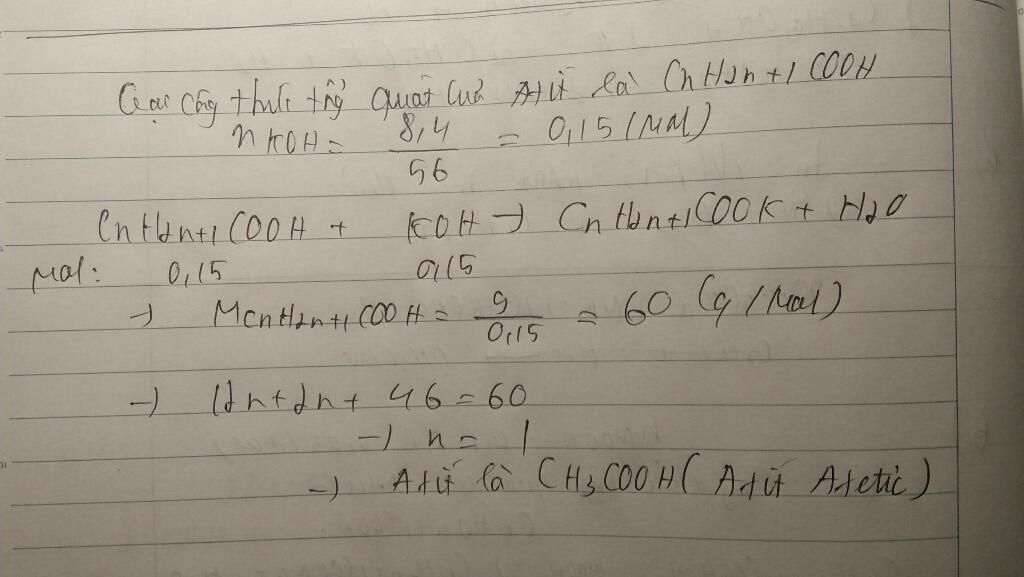 Gọi công thức tổng quát của Axit là CnH2n+1COOH
nKOH = 8,4/56 = 0,15 (mol)
CnH2n+1COOH + KOH → CnH2n+1COOK + H2O
Mol: 0,15 0,15
→ MCnH2n+1COOH = 9/0,15 = 60 (g/mol)
→ 12n+2n+ 46 = 60
→ n = 1
→ Axit là CH3COOH ( Axit Axetic )